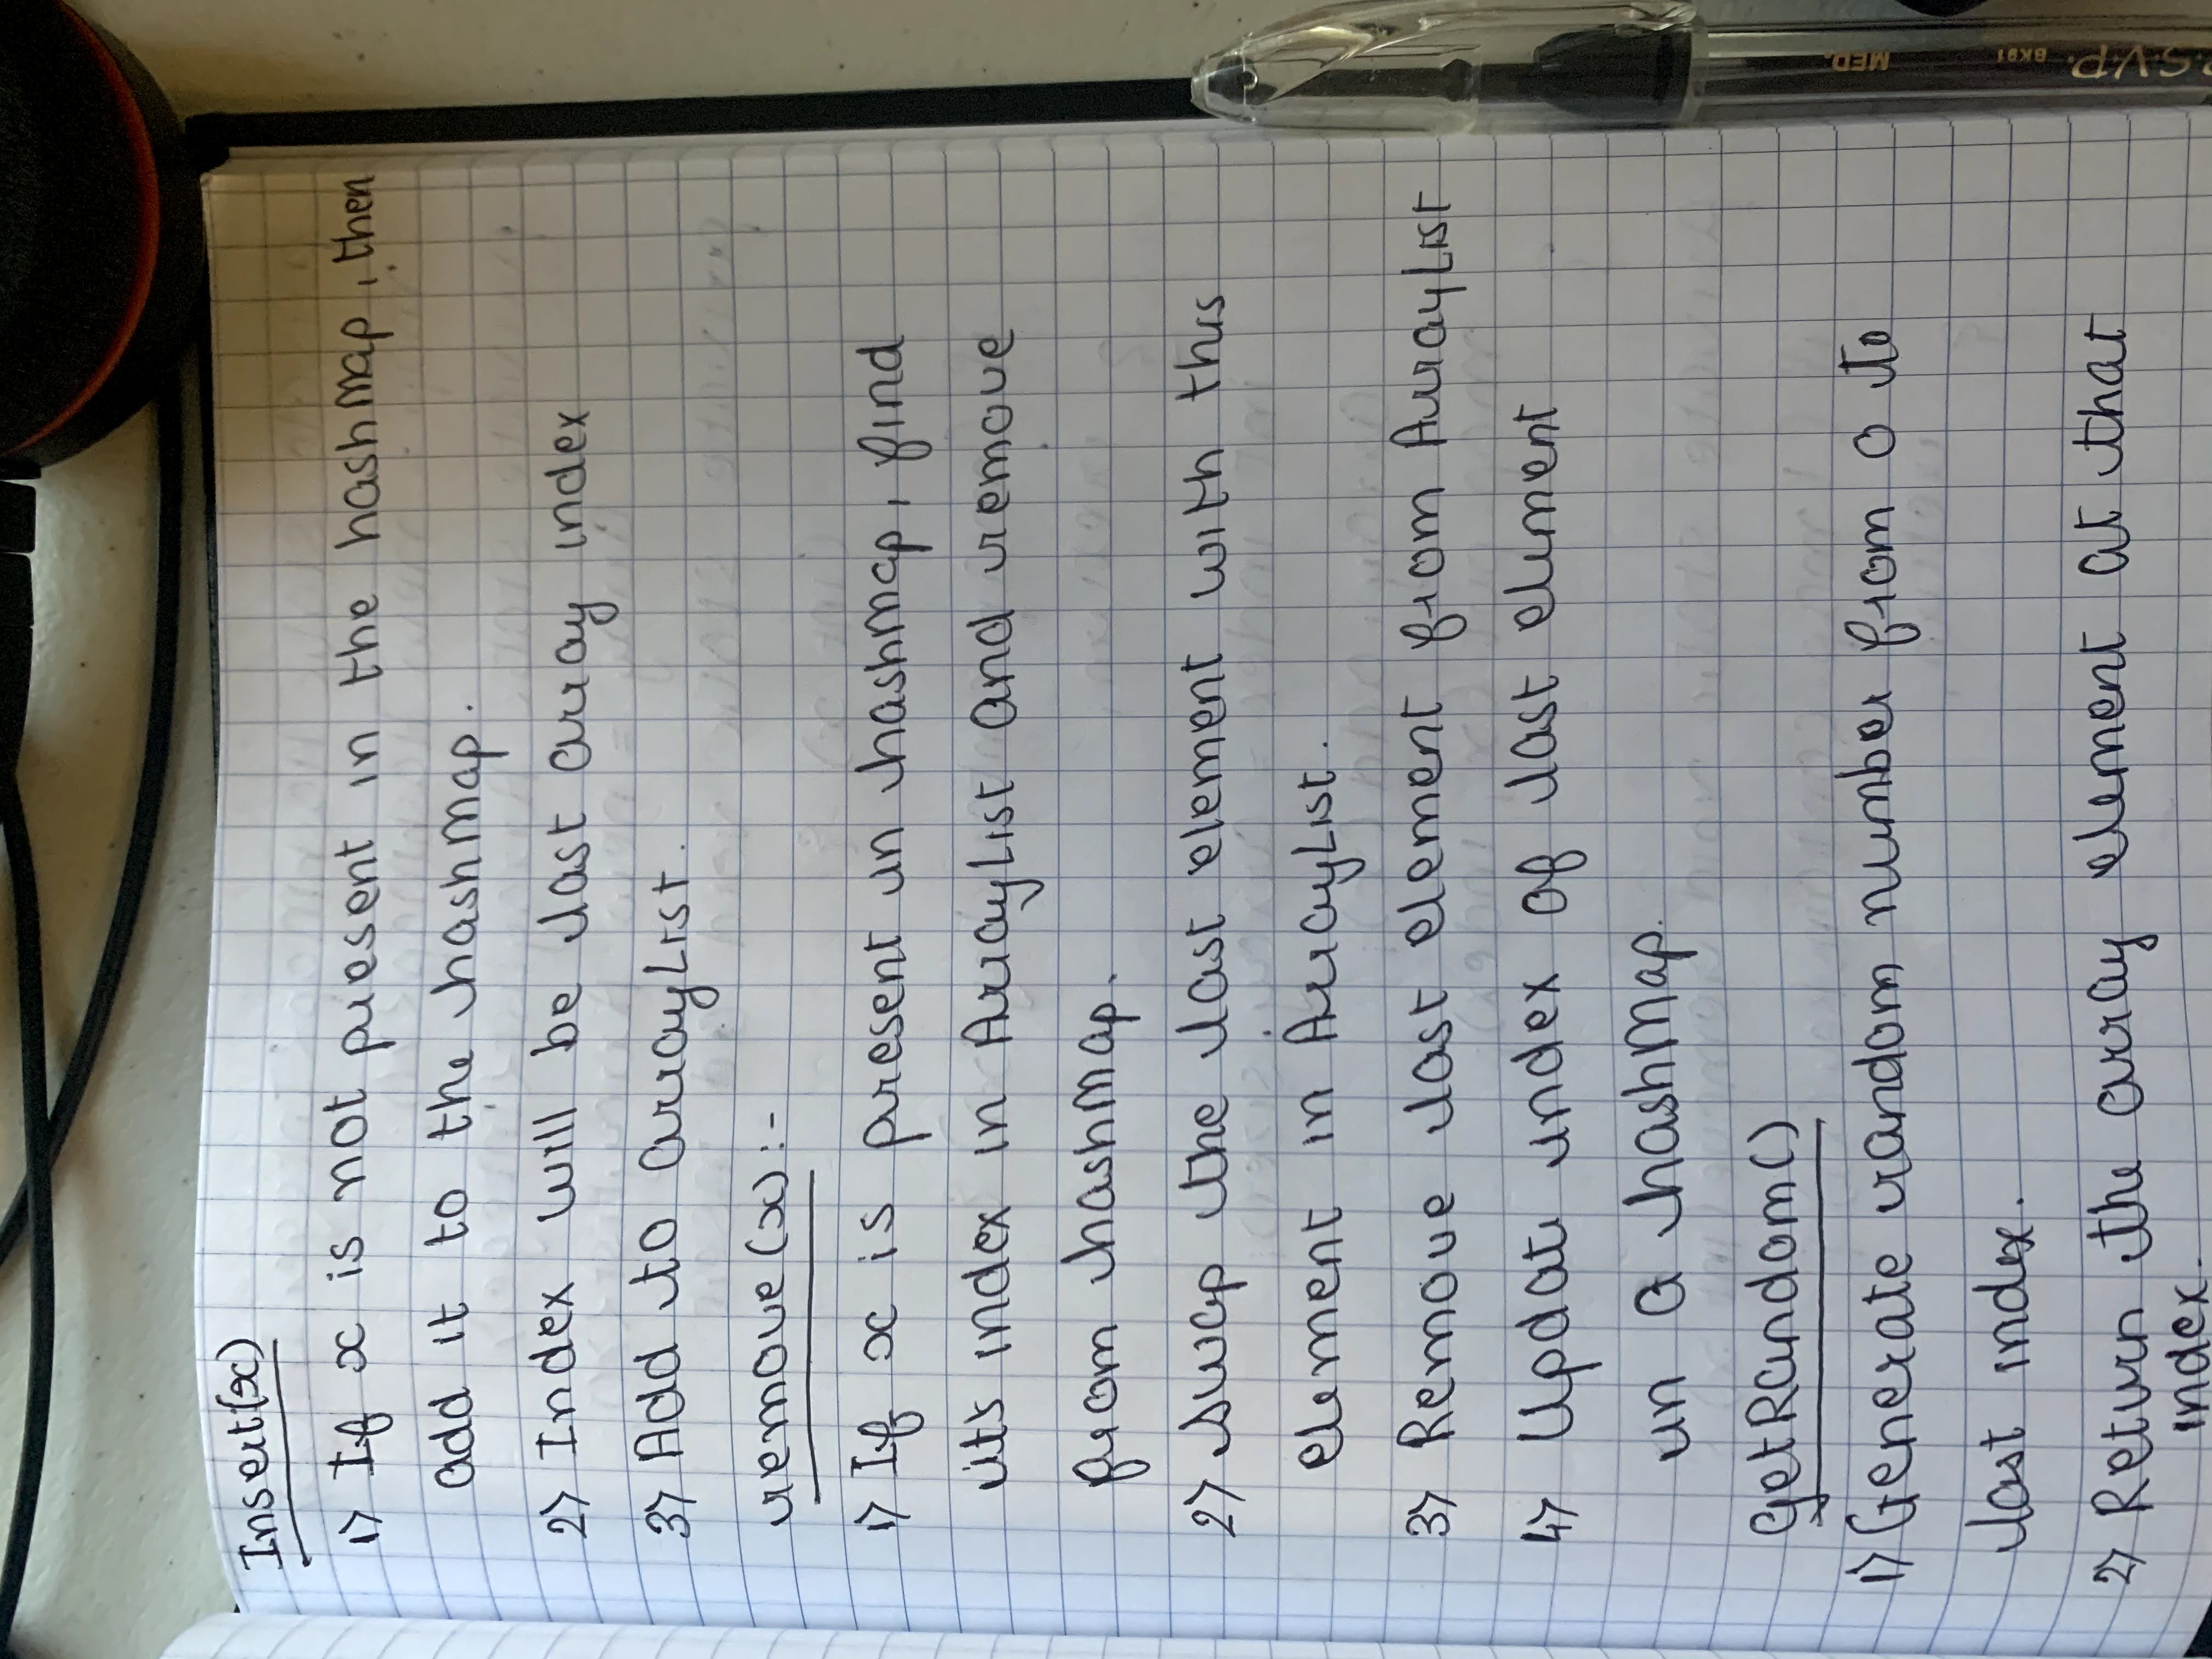 Insert(x)
1) If x is not present in the hashmap, then
add it to the hashmap.
2) Index will be last array index
3) Add to arrayList.
remove(x):-
1) If x is present in hashmap, find
its index in ArrayList and remove
from hashmap.
2) Swap the last element with this
element in ArrayList.
3) Remove last element from ArrayList
4) Update index of last element
in a hashMap.
getRandom()
1) Generate random number from 0 to
last index.
2) Return the array element at that
index.
MED.
BK91
R.S.V.P.